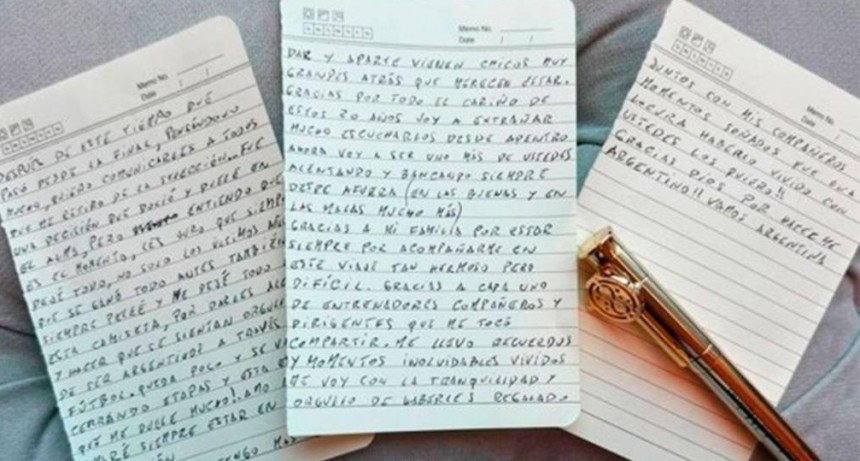 Memo No.
Date / /
DESPUES DE ESTE TIEMPO QUE
PASÓ DESDE LA FINAL, PENSÁNDOLO
MUCHO, QUIERO COMUNICARLES A TODOS
QUE ME RETIRO DE LA SELECCIÓN. FUE
UNA DECISIÓN QUE DOLIÓ Y DUELE EN
EL ALMA, PERO ENTIENDO QUE
ES EL MOMENTO, LES JURO QUE SIEMPRE
DEJÉ TODO, NO SOLO LOS ULTIMOS AÑOS
QUE SE GANÓ TODO ANTES TAMBIÉN
SIEMPRE PELEÉ Y ME DEJÉ TODO
ESTA CAMISETA, POR DARLES
Y HACER QUE SE SIENTAN
DE SER ARGENTINOS A TRAVÉS
FÚTBOL. QUEDA POCO Y SE
CERRANDO ETAPAS Y ESTA
QUE ME DUELE MUCHO! AMO
SIEMPRE ESTAR EN
TENGO
Memo No.
Date / /
DAR Y APARTE VIENEN CHICOS MUY
GRANDES ATRÁS QUE MERECEN ESTAR.
GRACIAS POR TODO EL CARIÑO DE
ESTOS 20 AÑOS VOY A EXTRAÑAR
MUCHO ESCUCHARLOS DESDE ADENTRO
AHORA VOY A SER UNO MÁS DE USTEDES
ALENTANDO Y BANCANDO SIEMPRE
DESDE AFUERA (EN LAS BUENAS Y EN
LAS MALAS MUCHO MÁS)
GRACIAS A MI FAMILIA POR ESTAR
SIEMPRE POR ACOMPAÑARME EN
ESTE VIAJE TAN HERMOSO PERO
DIFÍCIL. GRACIAS A CADA UNO
DE ENTRENADORES COMPAÑEROS Y
DIRIGENTES QUE ME TOCÓ
COMPARTIR. ME LLEVO RECUERDOS
Y MOMENTOS INOLVIDABLES VIVIDOS
ME VOY CON LA TRANQUILIDAD Y
ORGULLO DE HABERLES REGALADO.
Memo No.
Date / /
JUNTOS CON MIS COMPAÑEROS
MOMENTOS SOÑADOS FUE UNA
LOCURA HABERLO VIVIDO CON
USTEDES LOS QUIERO!!
GRACIAS DIOS POR HACERME
ARGENTINO!! VAMOS ARGENTINA